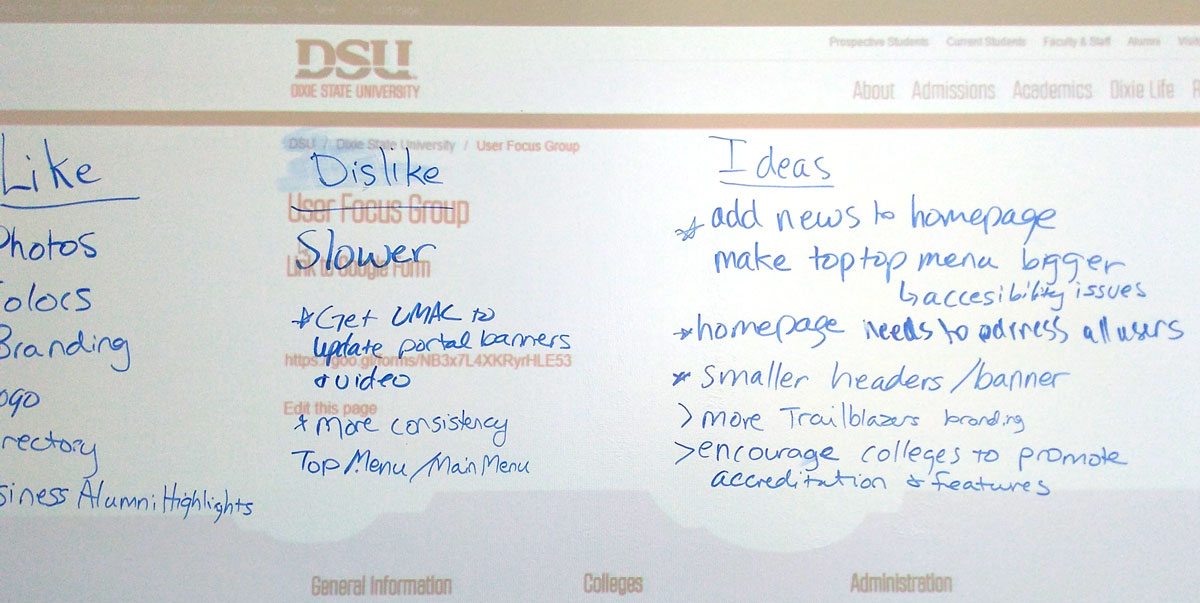 DSU
DIXIE STATE UNIVERSITY
Prospective Students Current Students Faculty & Staff Alumni
About Admissions Academics Dixie Life
DSU / Dixie State University / User Focus Group
User Focus Group
Link to Google Form
https://goo.gl/forms/NB3x7L4XKRyrHLE53
Edit this page
Like
Photos
Colors
Branding
Logo
Directory
Business Alumni Highlights
Dislike
Slower
* Get UMAC to
update portal banners
& video
* more consistency
Top Menu/Main Menu
Ideas
* add news to homepage
make top top menu bigger
↳ accesibility issues
* homepage needs to adrress all users
* smaller headers/banner
> more Trailblazers branding
> encourage colleges to promote
accreditation & features
General Information Colleges Administration